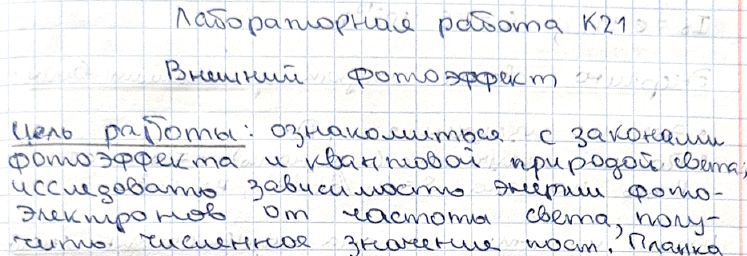 Лабораторная работа К21
Внешний фотоэффект
Цель работы: ознакомиться с законами
фотоэффекта и квантовой природой света;
исследовать зависимость энергии фото-
электронов от частоты света, полу-
чить численное значение пост. Планка